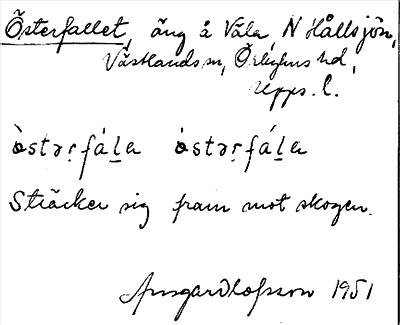 Österfallet, äng å Våla, N Hållsjön,
Västlands sn, Örbyhus hd,
Upps. l.
òstəṛfáḻa òstəṛfáḻa
Sträcker sig fram mot skogen.
Ansgar Olofsson 1951